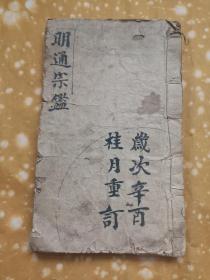 明通宗鑑
歲次辛酉
桂月重訂